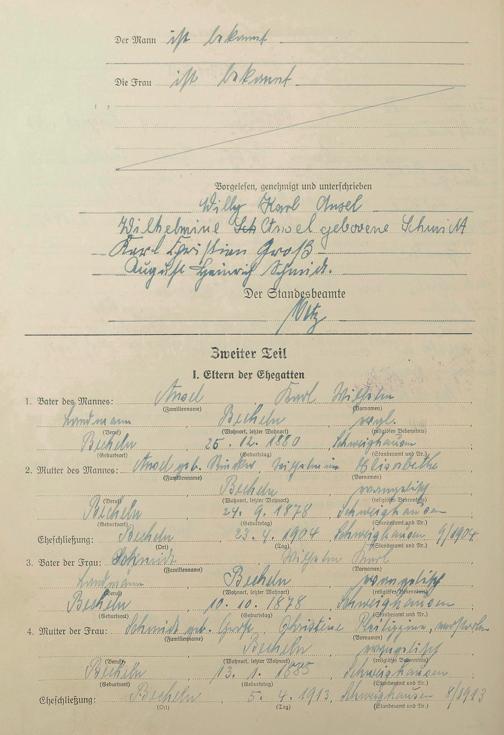 Der Mann ist bekannt
Die Frau ist bekannt
Vorgelesen, genehmigt und unterschrieben
Willy Karl Ansel
Wilhelmine Sch Ansel geborene Schmidt
Karl Christian Groß
August Heinrich Schmidt.
Der Standesbeamte
Zweiter Teil
I. Eltern der Ehegatten
1. Vater des Mannes: Ansel Karl Wilhelm
(Familienname) (Vornamen)
Landmann Becheln evgl.
(Beruf) (Wohnort, letzter Wohnort) (religiöses Bekenntnis)
Becheln 25. 12. 1880 Schweighausen
(Geburtsort) (Geburtstag) (Standesamt und Nr.)
2. Mutter des Mannes: Ansel geb. Wilhelmine Elisabethe
(Familienname) (Vornamen)
Becheln evangelisch
(Beruf) (Wohnort, letzter Wohnort) (religiöses Bekenntnis)
Becheln 24. 9. 1878 Schweighausen
(Geburtsort) (Geburtstag) (Standesamt und Nr.)
Eheschließung: Becheln 23. 4. 1904 Schweighausen 9/1904
(Ort) (Tag) (Standesamt und Nr.)
3. Vater der Frau: Schmidt Wilhelm Karl
(Familienname) (Vornamen)
Landmann Becheln evangelisch
(Beruf) (Wohnort, letzter Wohnort) (religiöses Bekenntnis)
Becheln 10. 10. 1878 Schweighausen
(Geburtsort) (Geburtstag) (Standesamt und Nr.)
4. Mutter der Frau: Schmidt geb. Groß Christine
(Familienname) (Vornamen)
Becheln evangelisch
(Beruf) (Wohnort, letzter Wohnort) (religiöses Bekenntnis)
Becheln 13. 1. Schweighausen
(Geburtsort) (Geburtstag) (Standesamt und Nr.)
Eheschließung: Becheln 5. 4. 1913, Schweighausen 8/1913
(Ort) (Tag) (Standesamt und Nr.)